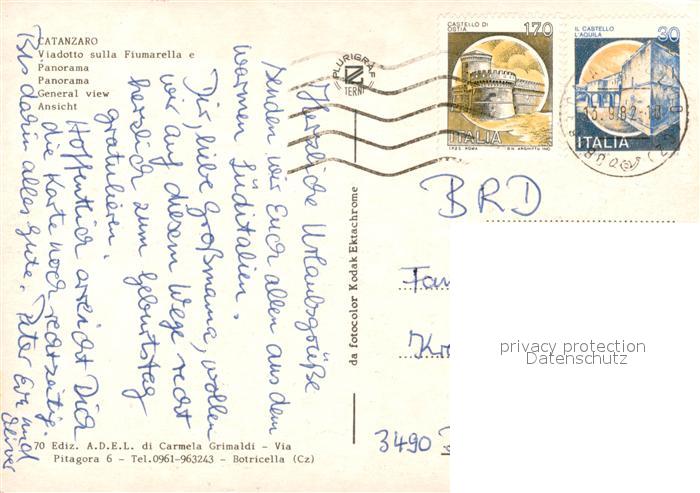 CATANZARO
Viadotto sulla Fiumarella e
Panorama
Panorama
General view
Ansicht
Herzliche Urlaubsgrüße
senden wir Euch allen aus dem
warmen Süditalien.
Dir, liebe Großmama, wollen
wir auf diesem Wege recht
herzlich zum Geburtstag
gratulieren.
Hoffentlich erreicht Dich
die Karte noch rechtzeitig.
Bis dahin alles Gute. Peter Eva und
Oliver
70 Ediz. A.D.E.L. di Carmela Grimaldi - Via
Pitagora 6 - Tel.0961-963243 - Botricella (Cz)
PLURIGRAF
TERNI
da fotocolor Kodak Ektachrome
CASTELLO DI
OSTIA
170
ITALIA
I.P.Z.S. ROMA
IL CASTELLO
L'AQUILA
30
ITALIA
BRD
Fam
3490
privacy protection
Datenschutz